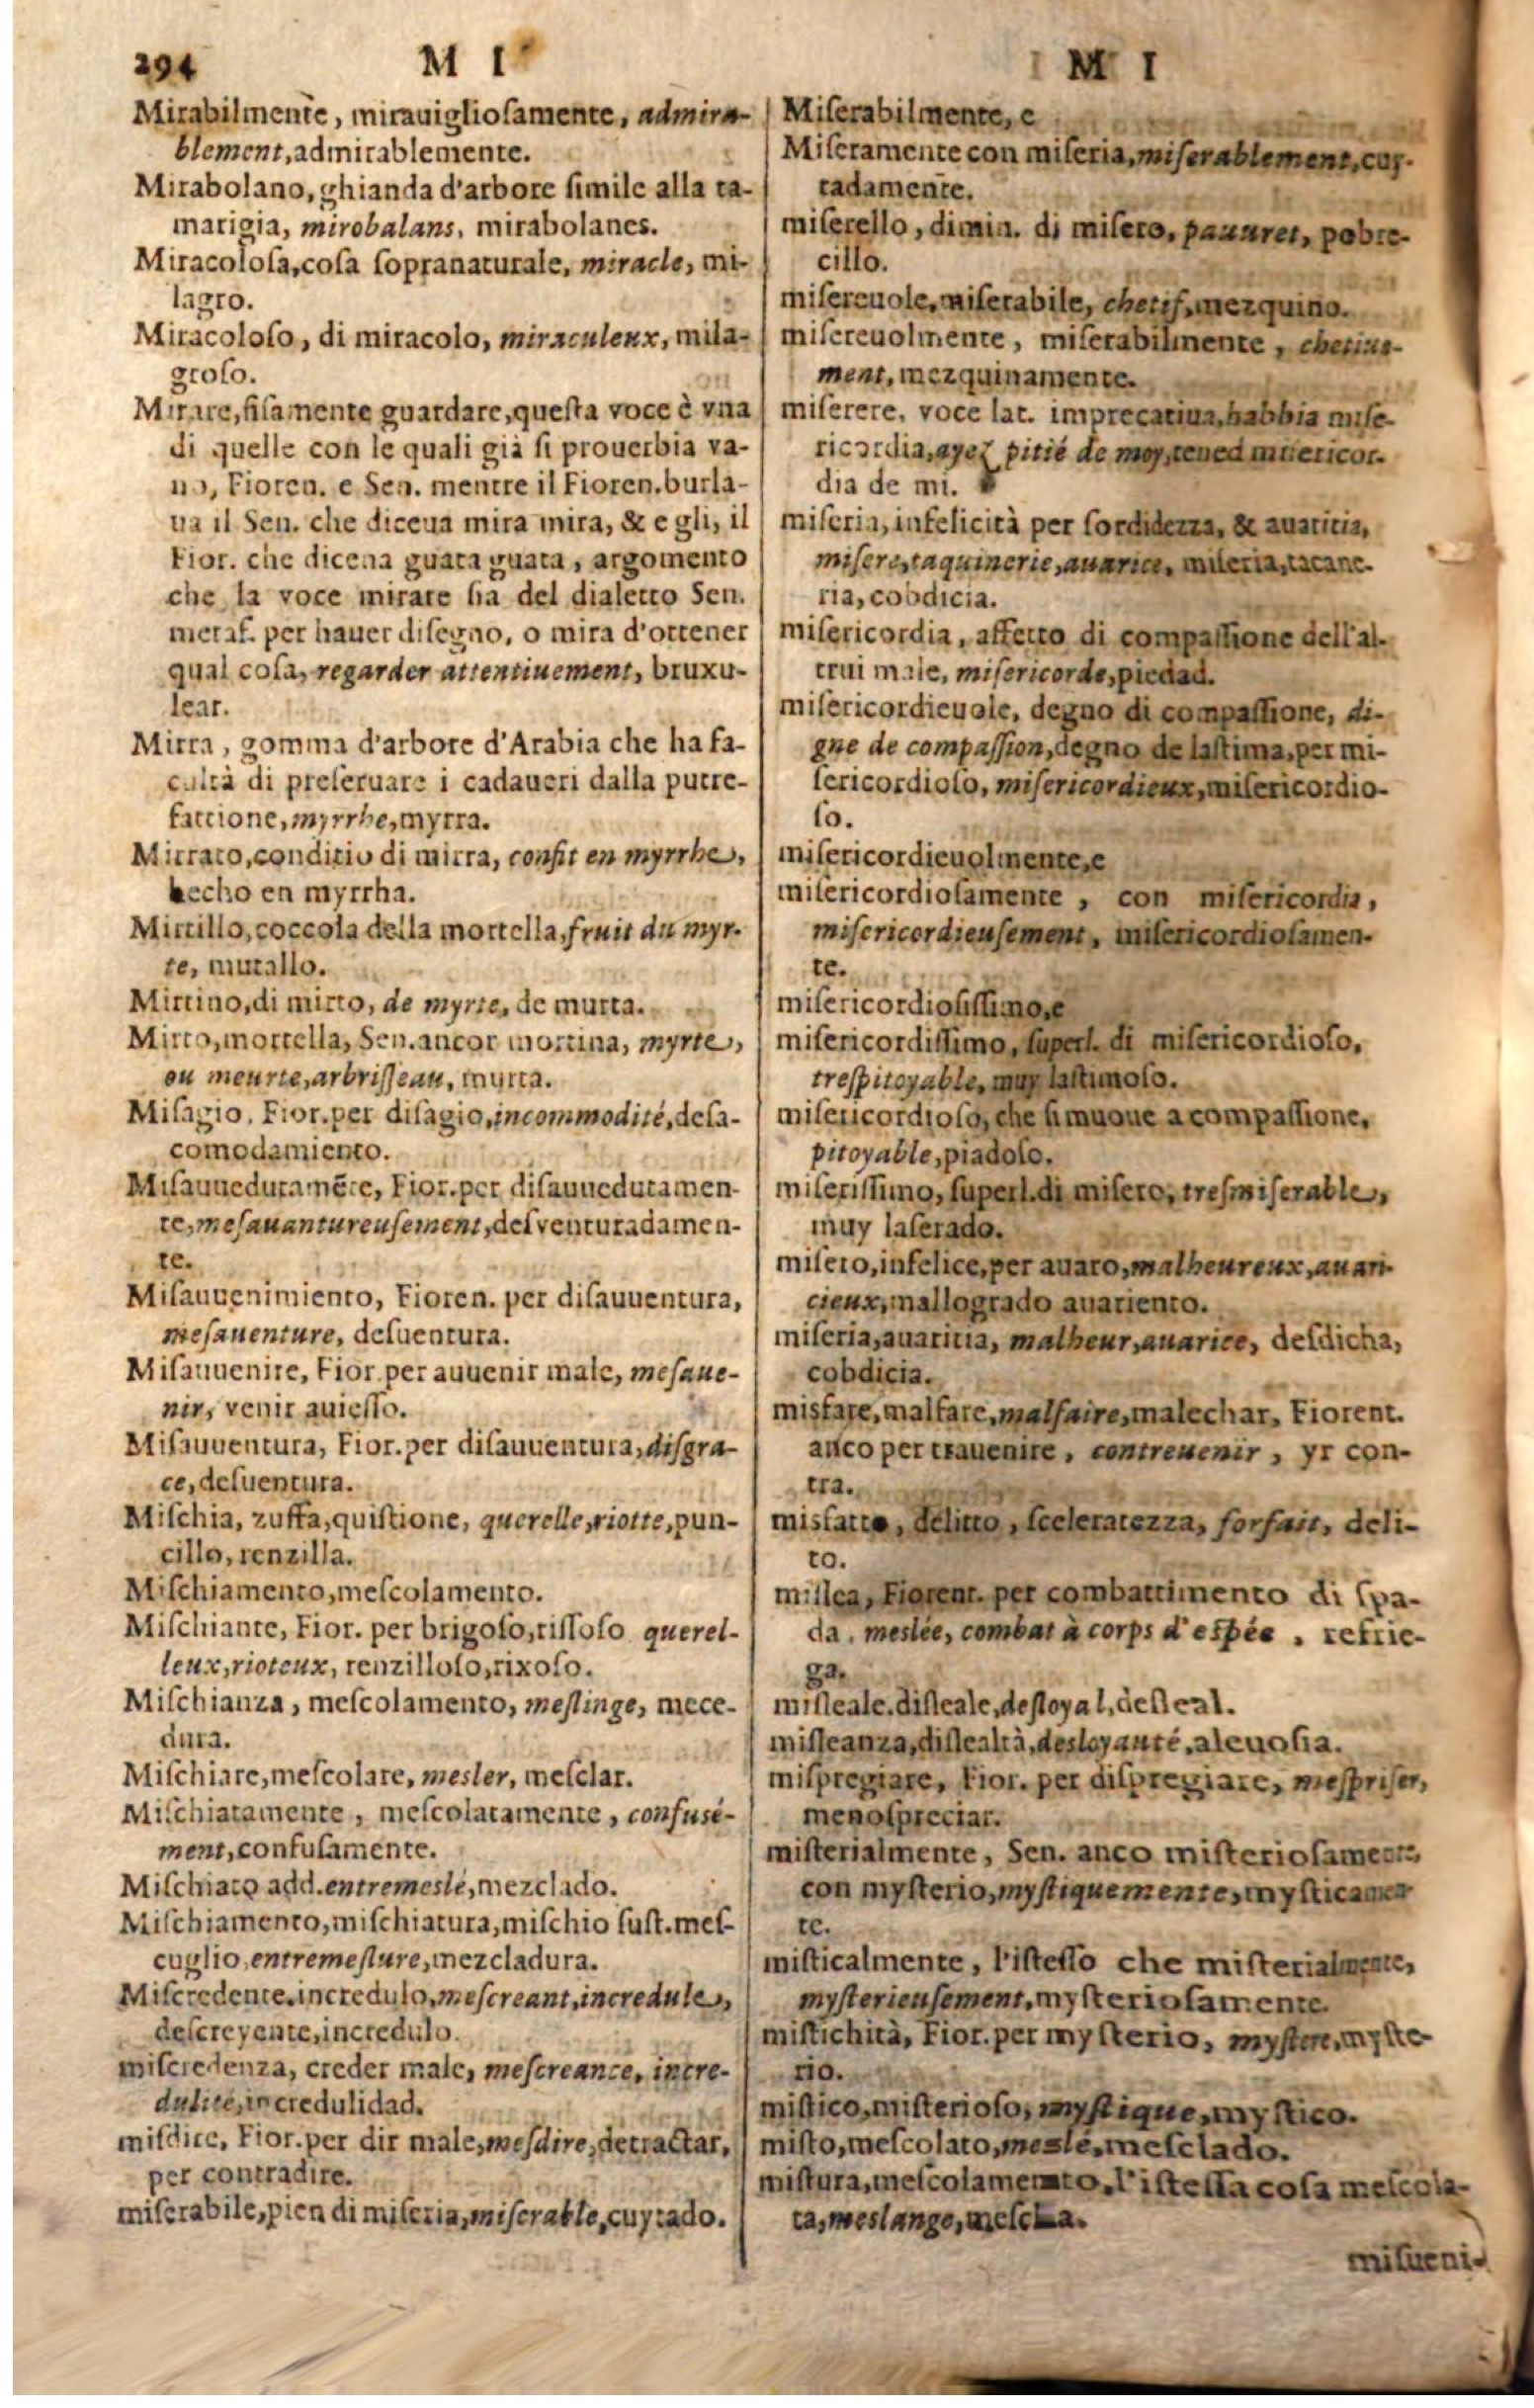 294 M I
Mirabilmente, mirauiglioſamente, admira-
blement, admirablemente.
Mirabolano, ghianda d'arbore ſimile alla ta-
marigia, mirobalans, mirabolanes.
Miracoloſa, coſa ſopranaturale, miracle, mi-
lagro.
Miracoloſo, di miracolo, miraculeux, mila-
groſo.
Mirare, fiſamente guardare, queſta voce è vna
di quelle con le quali già ſi prouerbia va-
no, Fioren. e Sen. mentre il Fioren. burla-
ua il Sen. che diceua mira mira, & egli, il
Fior. che dicena guata guata, argomento
che la voce mirare ſia del dialetto Sen.
metaf. per hauer diſegno, o mira d'ottener
qual coſa, regarder attentiuement, bruxu-
lear.
Mirra, gomma d'arbore d'Arabia che ha fa-
cultà di preſeruare i cadaueri dalla putre-
fattione, myrrhe, myrra.
Mirrato, conditio di mirra, confit en myrrhe,
hecho en myrrha.
Mirtillo, coccola della mortella, fruit du myr-
te, murallo.
Mirtino, di mirto, de myrte, de murta.
Mirto, mortella, Sen. ancor mortina, myrte,
ou meurte, arbriſſeau, murta.
Miſagio, Fior. per diſagio, incommodité, deſa-
comodamiento.
Miſauuedutamẽte, Fior. per diſauuedutamen-
te, meſauantureuſement, deſventuradamen-
te.
Miſauuenimiento, Fioren. per diſauuentura,
meſauenture, deſuentura.
Miſauuenire, Fior. per auuenir male, meſaue-
nir, venir auieſſo.
Miſauuentura, Fior. per diſauuentura, diſgra-
ce, deſuentura.
Miſchia, zuffa, quiſtione, querelle, riotte, pun-
cillo, renzilla.
Miſchiamento, meſcolamento.
Miſchiante, Fior. per brigoſo, riſſoſo querel-
leux, rioteux, renzilloſo, rixoſo.
Miſchianza, meſcolamento, meſlinge, mece-
dura.
Miſchiare, meſcolare, mesler, meſclar.
Miſchiatamente, meſcolatamente, confuſé-
ment, confuſamente.
Miſchiato add. entremeslé, mezclado.
Miſchiamento, miſchiatura, miſchio ſuſt. meſ-
cuglio, entremeſlure, mezcladura.
Miſcredente, incredulo, meſcreant, incredule,
deſcreyente, incredulo.
miſcredenza, creder male, meſcreance, incre-
dulité, incredulidad.
miſdire, Fior. per dir male, meſdire, detractar,
per contradire.
miſerabile, pien di miſeria, miſerable, cuytado.
M I
Miſerabilmente, e
Miſeramente con miſeria, miſerablement, cuy-
tadamente.
miſerello, dimin. di miſero, pauuret, pobre-
cillo.
miſereuole, miſerabile, chetif, mezquino.
miſereuolmente, miſerabilmente, chetiue-
ment, mezquinamente.
miſerere, voce lat. imprecatiua, habbia miſe-
ricordia, ayez pitié de moy, tened miſericor-
dia de mi.
miſeria, infelicità per ſordidezza, & auaritia,
miſere, taquinerie, auarice, miſeria, tacane-
ria, cobdicia.
miſericordia, affetto di compaſſione dell'al-
trui male, miſericorde, piedad.
miſericordieuole, degno di compaſſione, di-
gne de compaſſion, degno de laſtima, per mi-
ſericordioſo, miſericordieux, miſericordio-
ſo.
miſericordieuolmente, e
miſericordioſamente, con miſericordia,
miſericordieuſement, miſericordioſamen-
te.
miſericordioſiſſimo, e
miſericordiſſimo, ſuperl. di miſericordioſo,
treſpitoyable, muy laſtimoſo.
miſericordioſo, che ſi muoue a compaſſione,
pitoyable, piadoſo.
miſeriſſimo, ſuperl. di miſero, treſmiſerable,
muy laſerado.
miſero, infelice, per auaro, malheureux, auari-
cieux, mallogrado auariento.
miſeria, auaritia, malheur, auarice, deſdicha,
cobdicia.
misfare, malfare, malfaire, malechar, Fiorent.
anco per trauenire, contreuenir, yr con-
tra.
misfatto, delitto, ſceleratezza, forfait, deli-
to.
miſlea, Fiorent. per combattimento di ſpa-
da, meslée, combat à corps d'eſpée, refrie-
ga.
miſleale, diſleale, deſloyal, deſleal.
miſleanza, diſlealtà, desloyauté, aleuoſia.
miſpregiare, Fior. per diſpregiare, meſpriſer,
menoſpreciar.
miſterialmente, Sen. anco miſterioſamente,
con myſterio, myſtiquemente, myſticamen-
te.
miſticalmente, l'iſteſſo che miſterialmente,
myſterieuſement, myſterioſamente.
miſtichità, Fior. per myſterio, myſtere, myſte-
rio.
miſtico, miſterioſo, myſtique, myſtico.
miſto, meſcolato, meslé, meſclado.
miſtura, meſcolamento, l'iſteſſa coſa meſcola-
ta, meslange, meſcla.
miſueni-